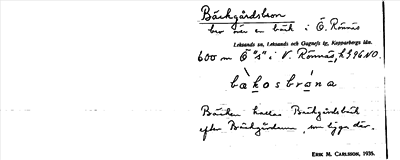 Bäckgårdsbron
bro över en bäck i Ö. Rönnäs
Leksands sn, Leksands och Gagnefs tg, Kopparbergs län.
600 m Ö "s" i V. Rönnäs, 96 NO.
bäkosbrona
Bäcken kallas Bäckgårdsbäck
efter Bäckgårdarna, som ligga där.
ERIK M. CARLSSON, 1935.